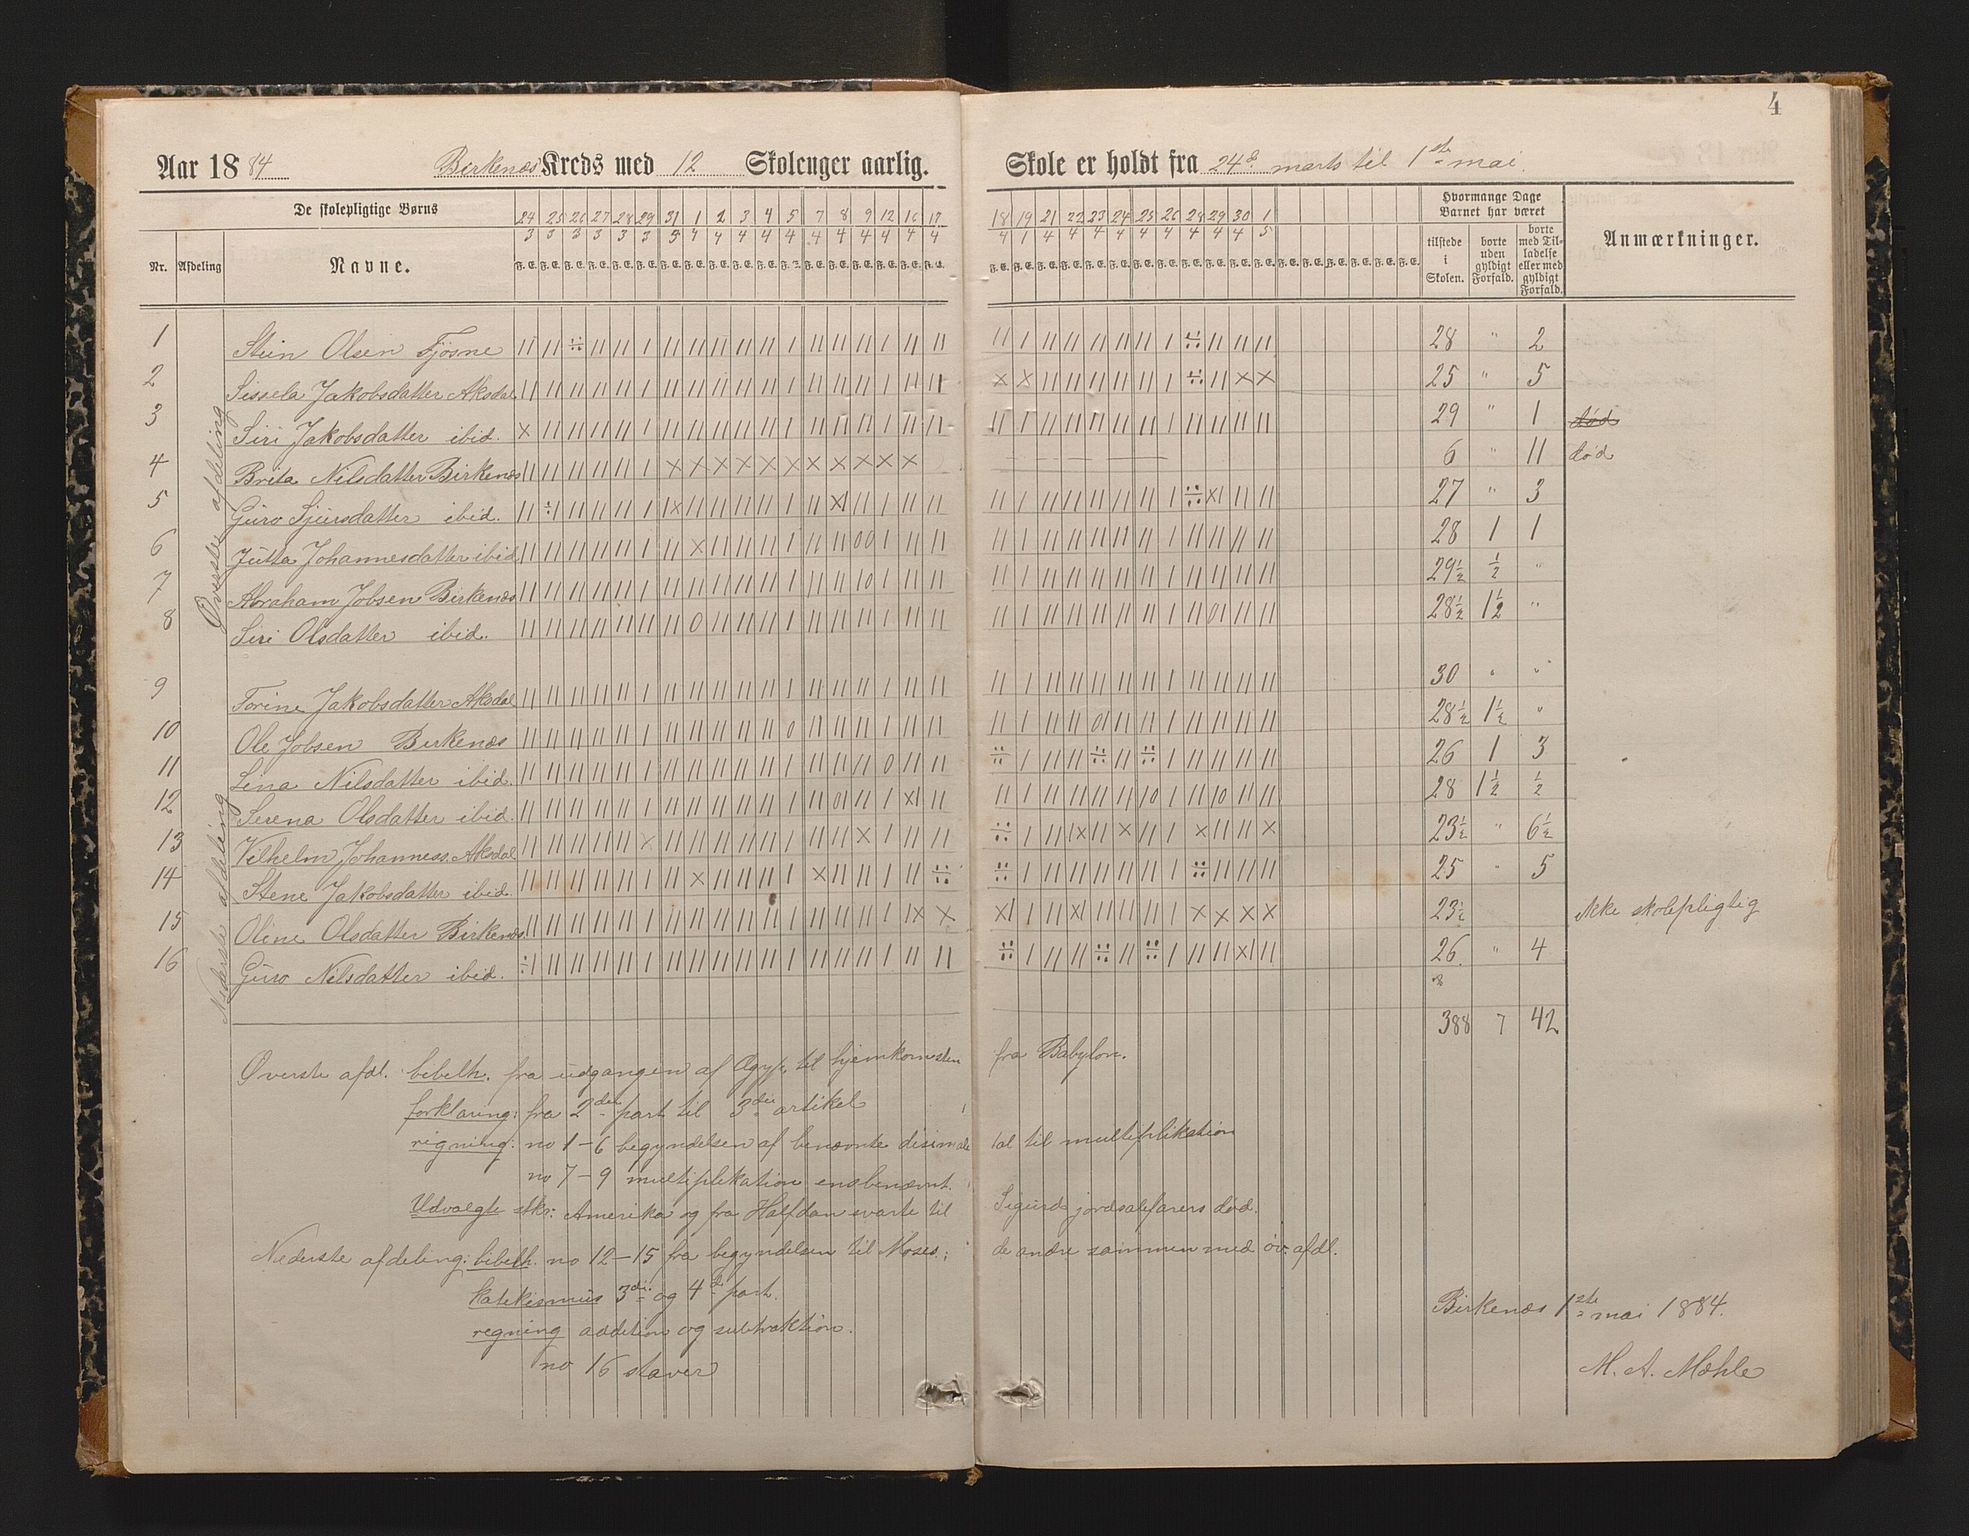 4
Aar 1884 Birkenæs Kreds med 12 Skolenger aarlig. Skole er holdt fra 24d. marts til 1ste mai.
De skolepligtige Børns
Nr. Afdeling Navne.
24 25 26 27 28 29 31 1 2 3 4 5 7 8 9 12 16 17 18 19 21 22 23 24 25 26 28 29 30 1
Hvormange Dage Barnet har været
tilstede i Skolen. borte uden gyldigt Forfald. borte med Tilladelse eller med gyldigt Forfald. Anmærkninger.
Øverste afdeling
1 Stein Olsen Fjøsne 28 " 2
2 Sissela Jakobsdatter Aksdal 25 " 5
3 Siri Jakobsdatter ibid. 29 " 1 død
4 Brita Nilsdatter Birkenæs 6 " 11 død
5 Guro Sjursdatter ibid. 27 " 3
6 Jutta Johannesdatter ibid 28 1 1
7 Abraham Jobsen Birkenæs 29½ ½ "
8 Siri Olsdatter ibid. 28½ 1½ "
Nederste afdeling
9 Torine Jakobsdatter Aksdal 30 " "
10 Ole Jobsen Birkenæs 28½ 1½ "
11 Lina Nilsdatter ibid. 26 1 3
12 Serena Olsdatter ibid. 28 1½ ½
13 Vilhelm Johanness. Aksdal 23½ " 6½
14 Stene Jakobsdatter ibid. 25 " 5
15 Oline Olsdatter Birkenæs 23½ ikke skolepligtig
16 Guro Nilsdatter ibid. 26 " 4
388 7 42
Øverste afdl. bibelh. fra udgangen af Ægyp. til hjemkomsten fra Babylon.
forklaring: fra 2den part til 3die artikel
regning: no 1-6 begyndelsen af benævnte disimale tal til multiplikation
no 7-9 multiplikation ensbenævnt.
Udvalgte stkr: Amerika og fra Halfdan svarte til Sigurd jordsalfarers død.
Nederste afdeling: bibelh. no 12-15 fra begyndelsen til Moses; de andre sammen med öv. afdl.
katekismus 3die og 4de part.
regning addition og subtraktion.
no 16 staver
Birkenæs 1ste mai 1884.
M. A. Mæhle